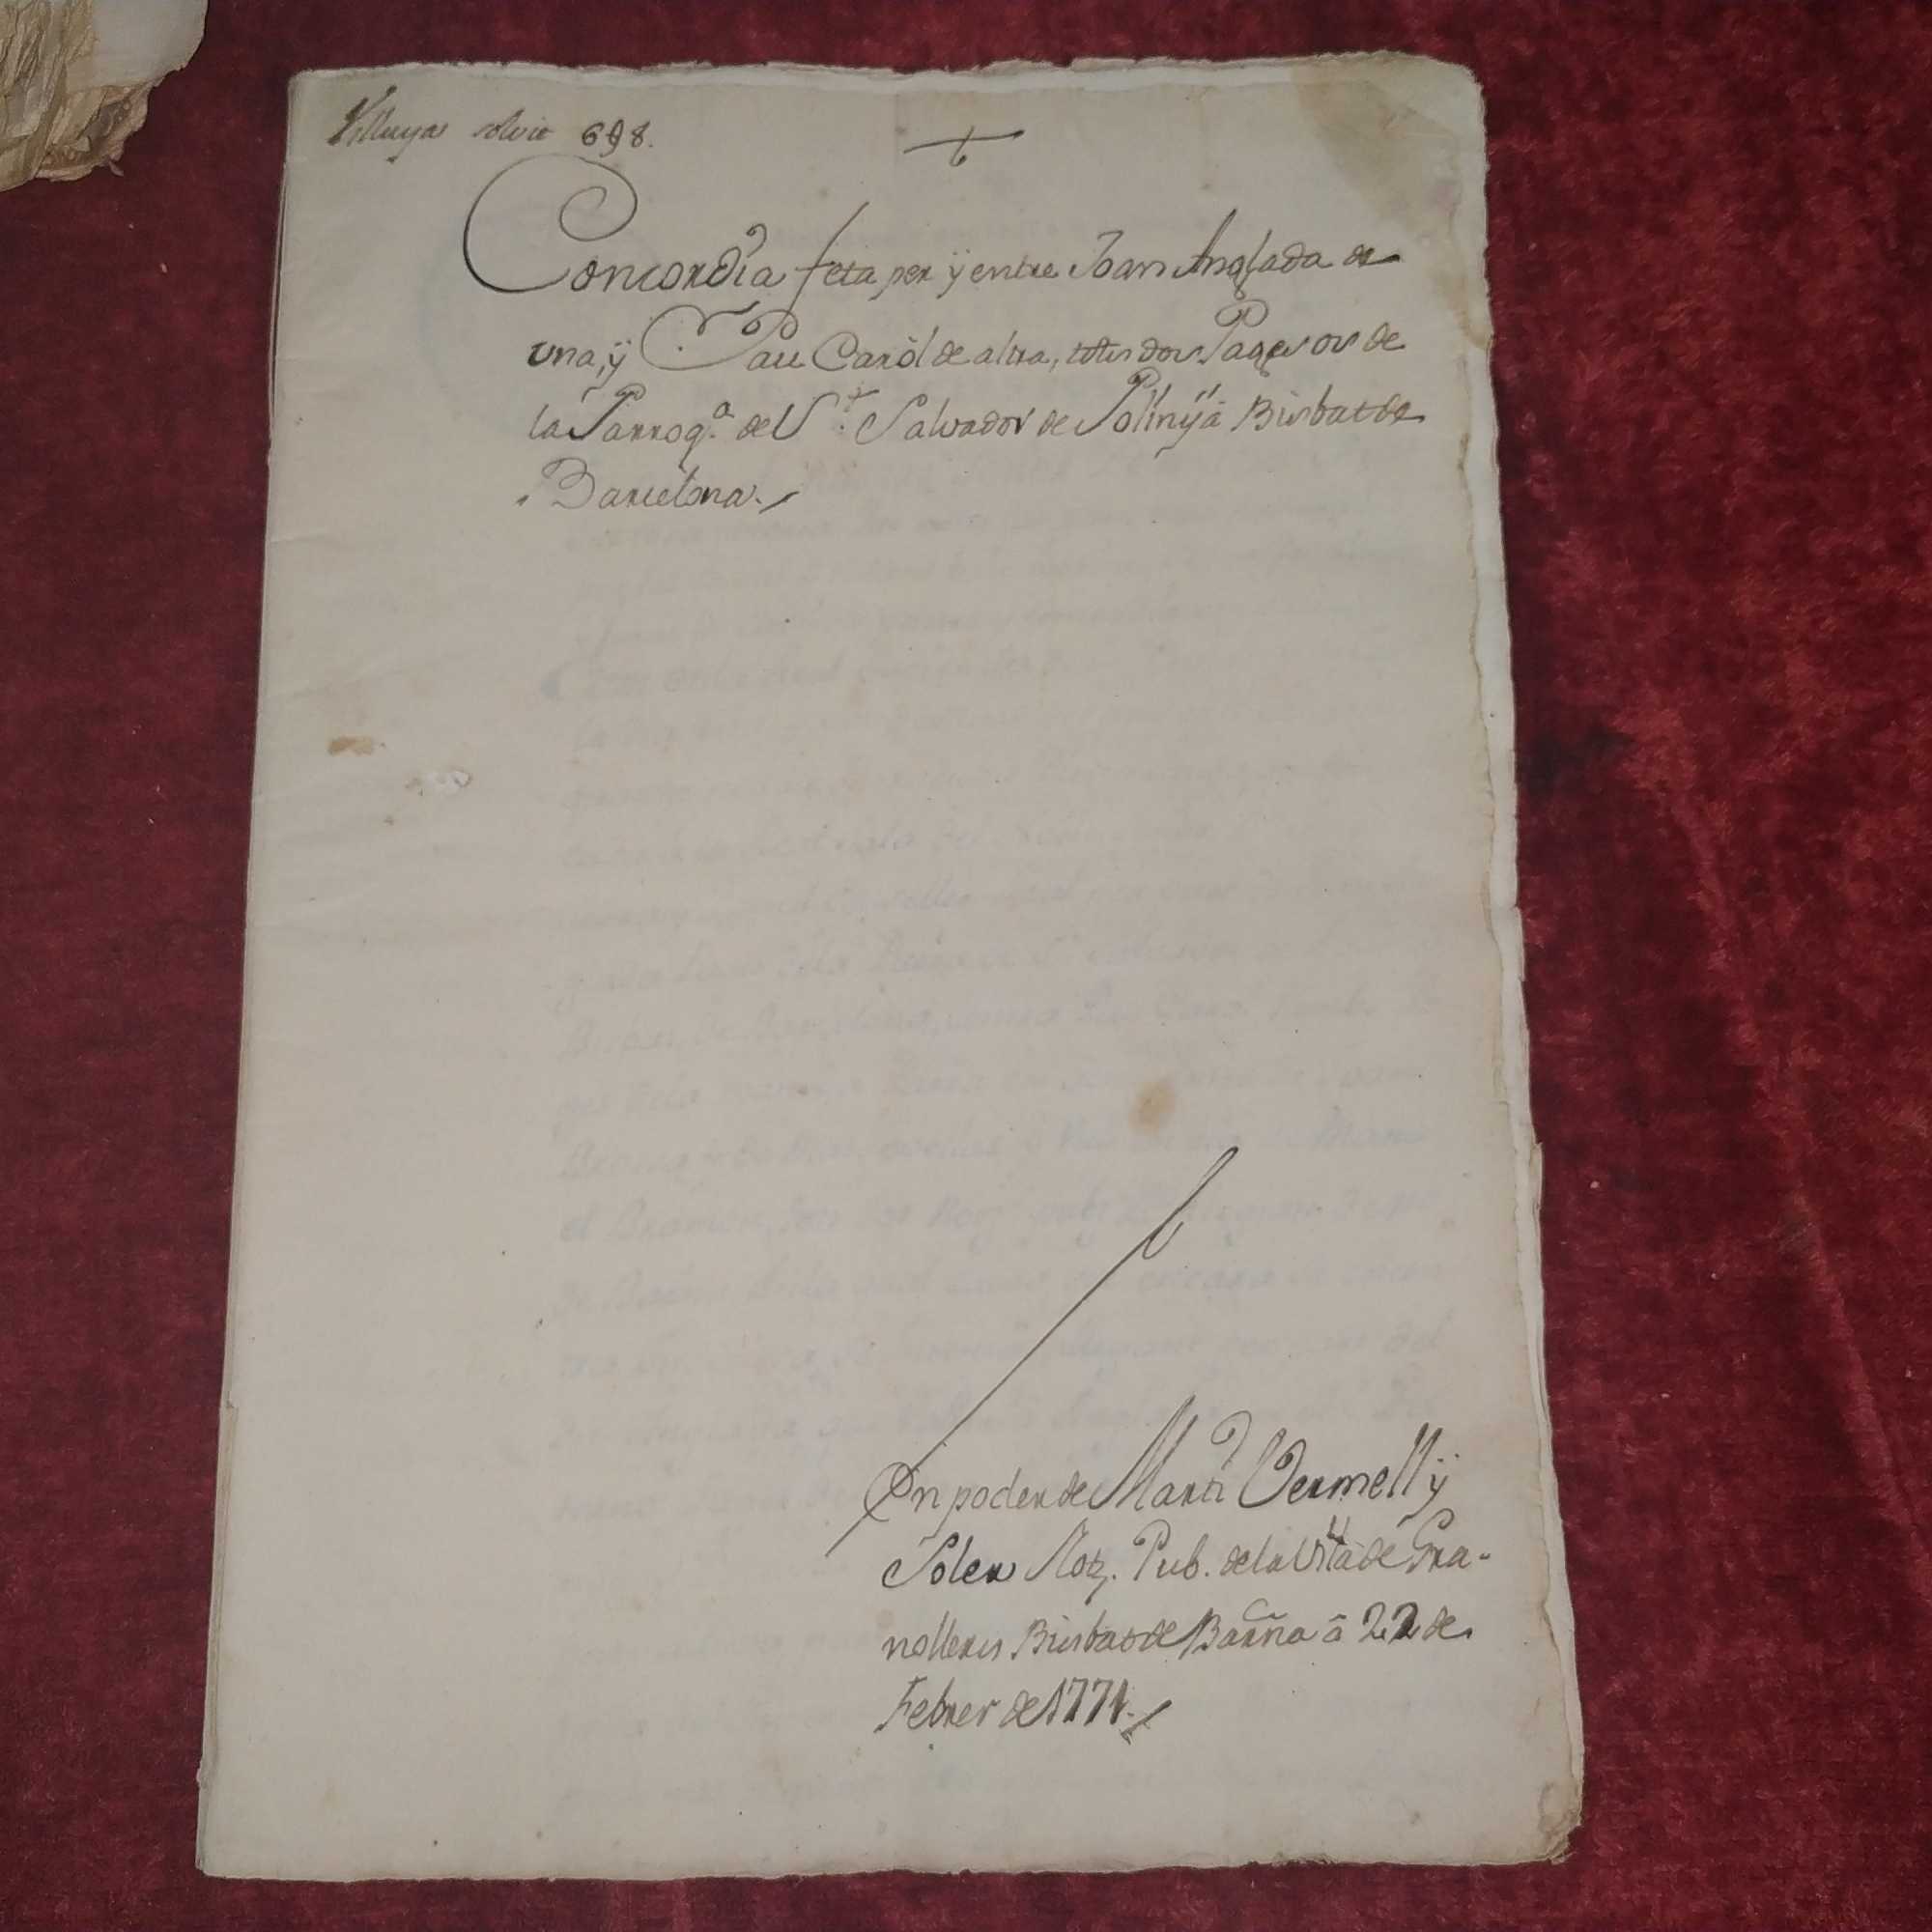 solvit 698.
Concordia feta per ÿ entre Joan Anglada de
una, ÿ Pau Caròl de altra, tots dos Pagesos de
la Parroq.ª de S.t Salvador de Polinÿá Bisbat de
Barcelona.
En poder de Martí Vermell ÿ
Soler Not. Pub. de la Vila de Gra-
nollers Bisbat de Barña â 22 de
Febrer de 1771.